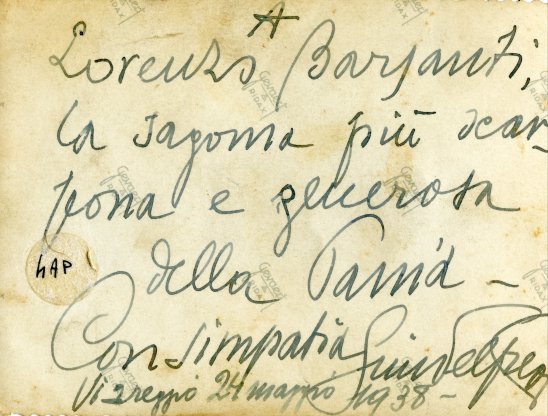 A
Lorenzo Barsanti,
la sagoma più scar-
pona e generosa
della
Con simpatia
Viareggio 24 maggio 1938 -
hAP
Gevaert
RIDAX